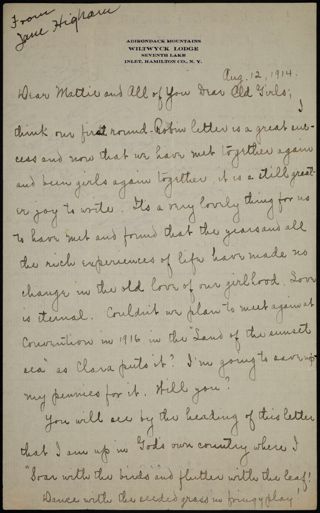 From
Jane Higham
ADIRONDACK MOUNTAINS
WILTWYCK LODGE
SEVENTH LAKE
INLET, HAMILTON CO., N. Y.
Aug. 12, 1914.
Dear Mattie and All of You Dear Old Girls;
I
think our first round-Robin letter is a great suc-
cess and now that we have met together again
and been girls again together it is a still great-
er joy to write. It's a very lovely thing for us
to have met and found that the years and all
the rich experiences of life have made no
change in the old love of our girlhood. Love
is eternal. Couldn't we plan to meet again at
Convention in 1916 in the "Land of the sunset
sea" as Clara puts it? I'm going to save up
my pennies for it. Will you?
You will see by the heading of this letter
that I am up in God's own country where I
"Soar with the birds and flutter with the leaf!
Dance with the seeded grass in fringy play,